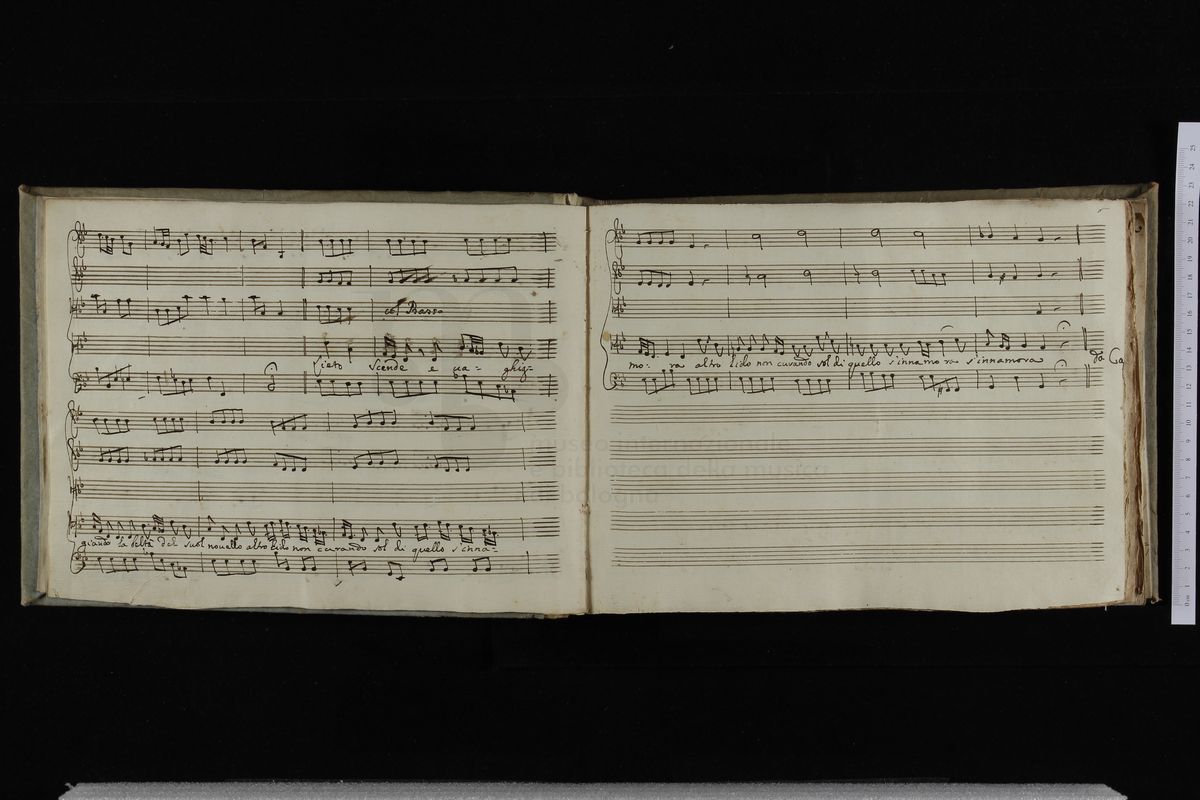 col Basso
lieto scende e va- ghig-
giando la beltà del suol novello altro lido non curando sol di quello s'inna-
mo- ra altro lido non curando sol di quello s'innamora s'innamora Da Ca
museo internazionale
e biblioteca della musica
di bologna